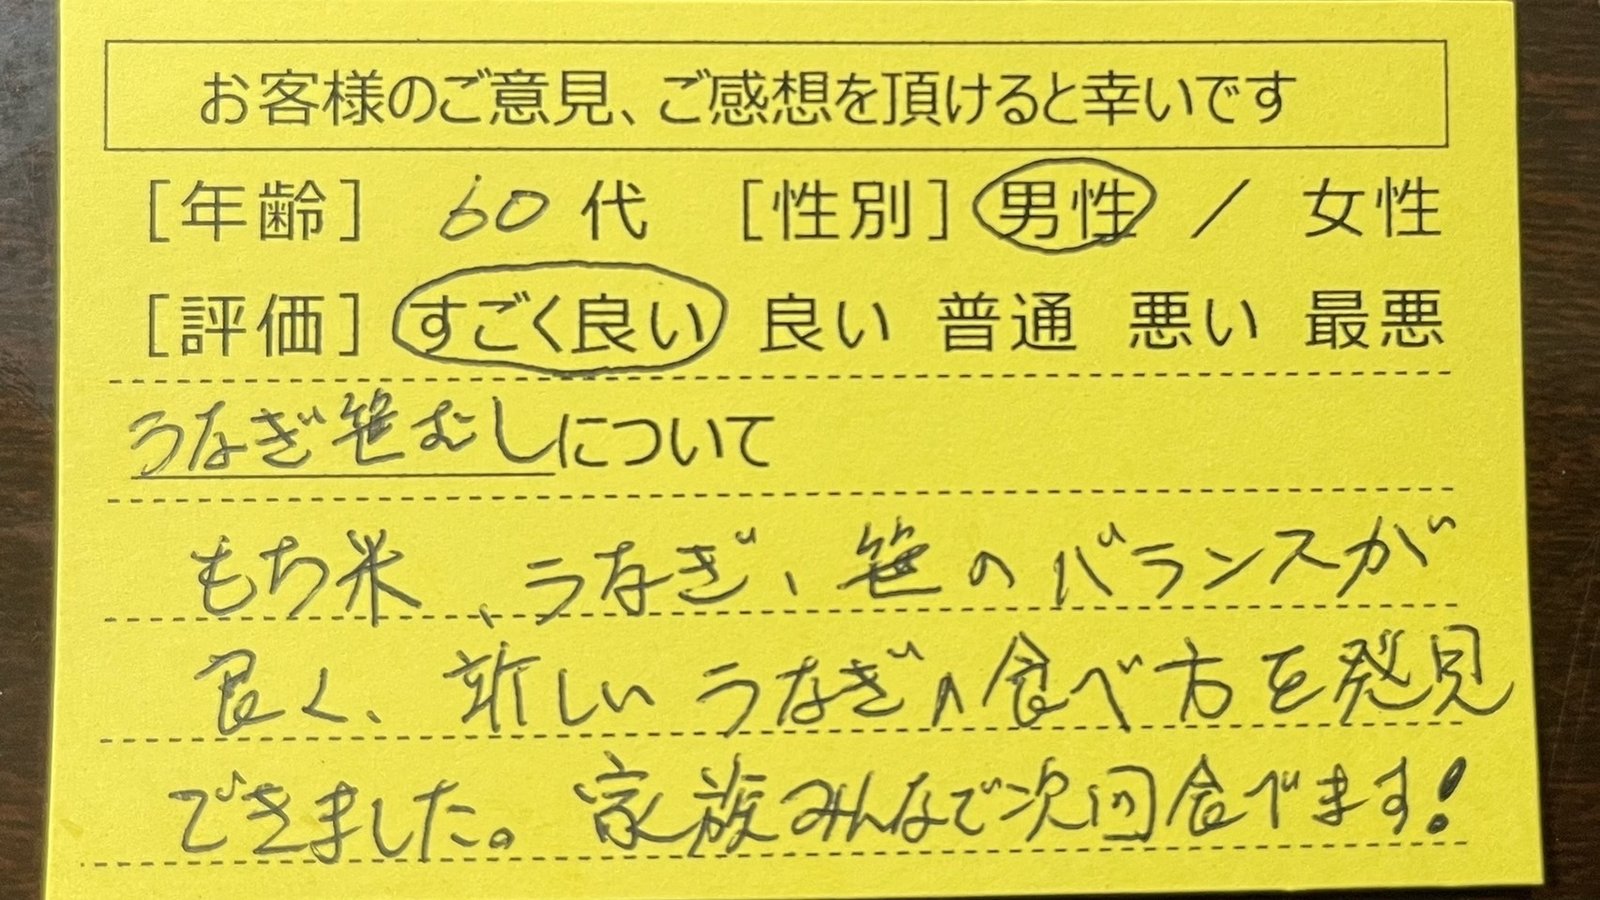 お客様のご意見、ご感想を頂けると幸いです
[年齢] 60代 [性別] 男性 / 女性
[評価] すごく良い 良い 普通 悪い 最悪
うなぎ笹むしについて
もち米、うなぎ、笹のバランスが
良く、新しいうなぎの食べ方を発見
できました。家族みんなで次回食べます!